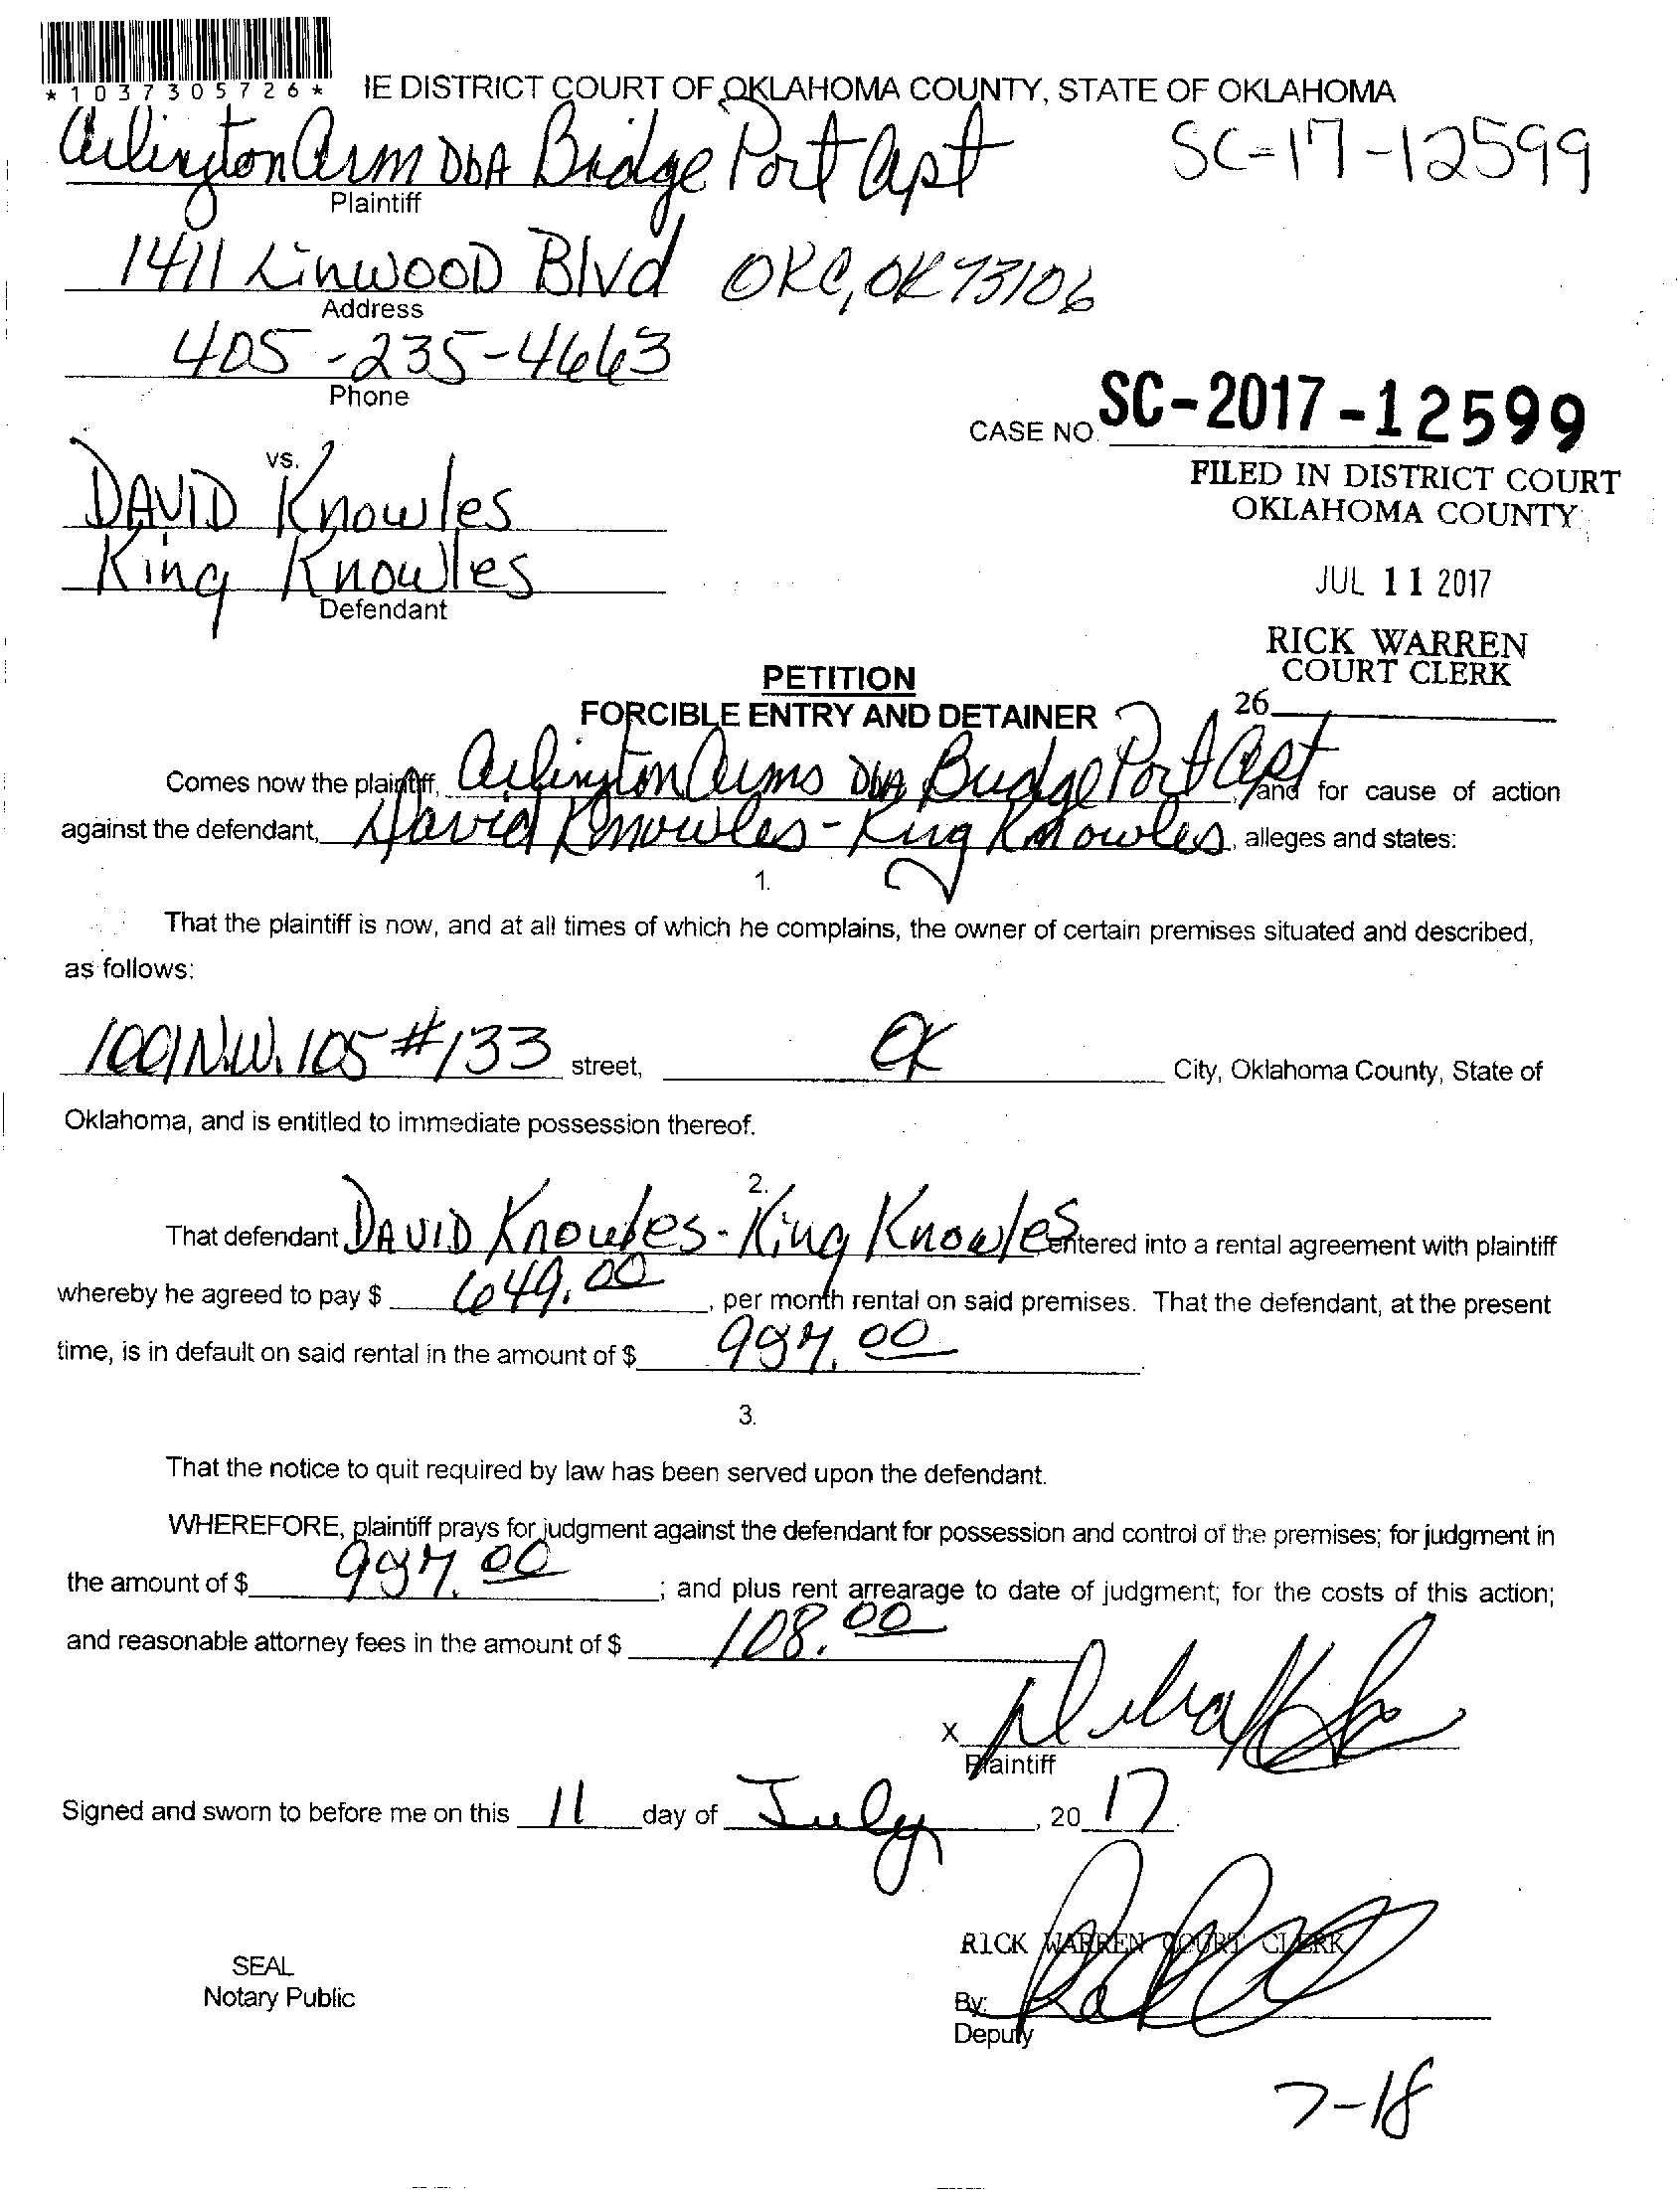 *1037305726*
IE DISTRICT COURT OF OKLAHOMA COUNTY, STATE OF OKLAHOMA
Arlington Arm DBA Bridge Port Apt
SC-17-12599
Plaintiff
1411 Linwood Blvd OKC, OK 73106
Address
405-235-4663
Phone
CASE NO. SC-2017-12599
FILED IN DISTRICT COURT
OKLAHOMA COUNTY
vs.
DAVID Knowles
King Knowles
Defendant
JUL 11 2017
RICK WARREN
COURT CLERK
26
PETITION
FORCIBLE ENTRY AND DETAINER
Comes now the plaintiff, Arlington Arms DBA Bridge Port Apt, and for cause of action
against the defendant, David Knowles - King Knowles, alleges and states:
1.
That the plaintiff is now, and at all times of which he complains, the owner of certain premises situated and described,
as follows:
1001 N.W. 105 #133 street, OK City, Oklahoma County, State of
Oklahoma, and is entitled to immediate possession thereof.
2.
That defendant DAVID Knowles - King Knowles entered into a rental agreement with plaintiff
whereby he agreed to pay $ 649.00, per month rental on said premises. That the defendant, at the present
time, is in default on said rental in the amount of $ .00.
3.
That the notice to quit required by law has been served upon the defendant.
WHEREFORE, plaintiff prays for judgment against the defendant for possession and control of the premises; for judgment in
the amount of $ .00; and plus rent arrearage to date of judgment; for the costs of this action;
and reasonable attorney fees in the amount of $ 108.00
X
Plaintiff
Signed and sworn to before me on this 11 day of July, 20 17.
RICK WARREN COURT CLERK
SEAL
Notary Public
By:
Deputy
7-18